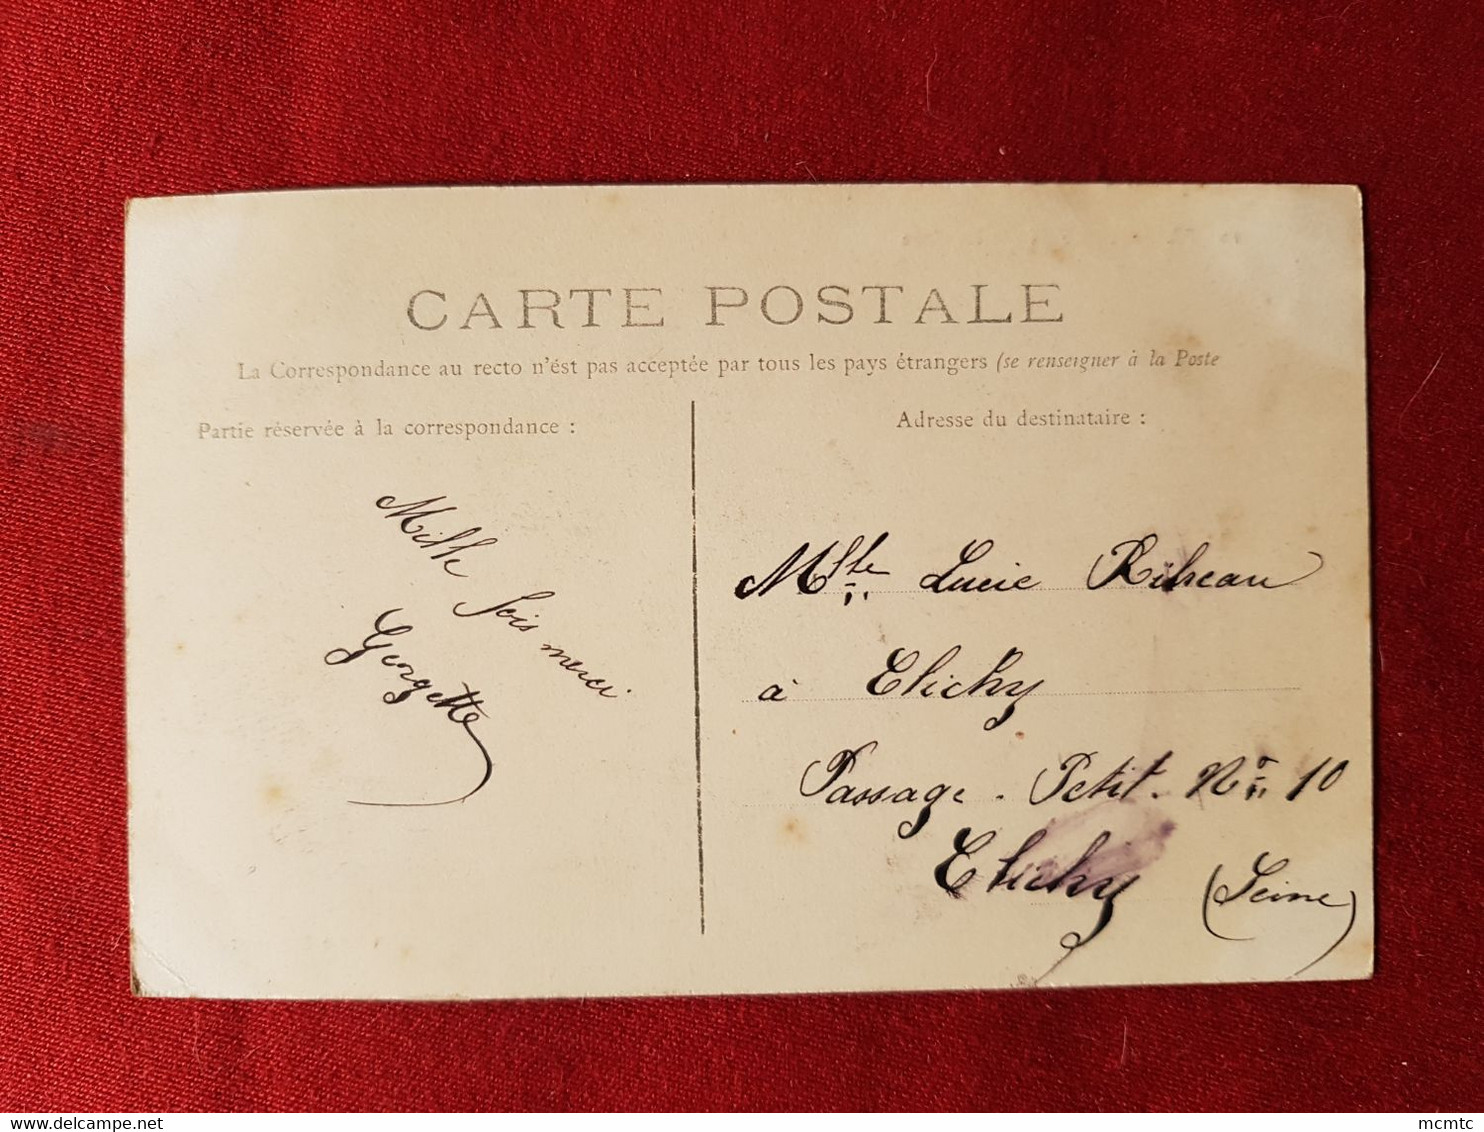 CARTE POSTALE
La Correspondance au recto n'ést pas acceptée par tous les pays étrangers (se renseigner à la Poste
Partie réservée à la correspondance :
Mille fois merci
Georgette
Adresse du destinataire :
Mlle Lucie Ribreau
à Clichy
Passage - Petit - No 10
Clichy (Seine)
Delcampe.net
mcmtc